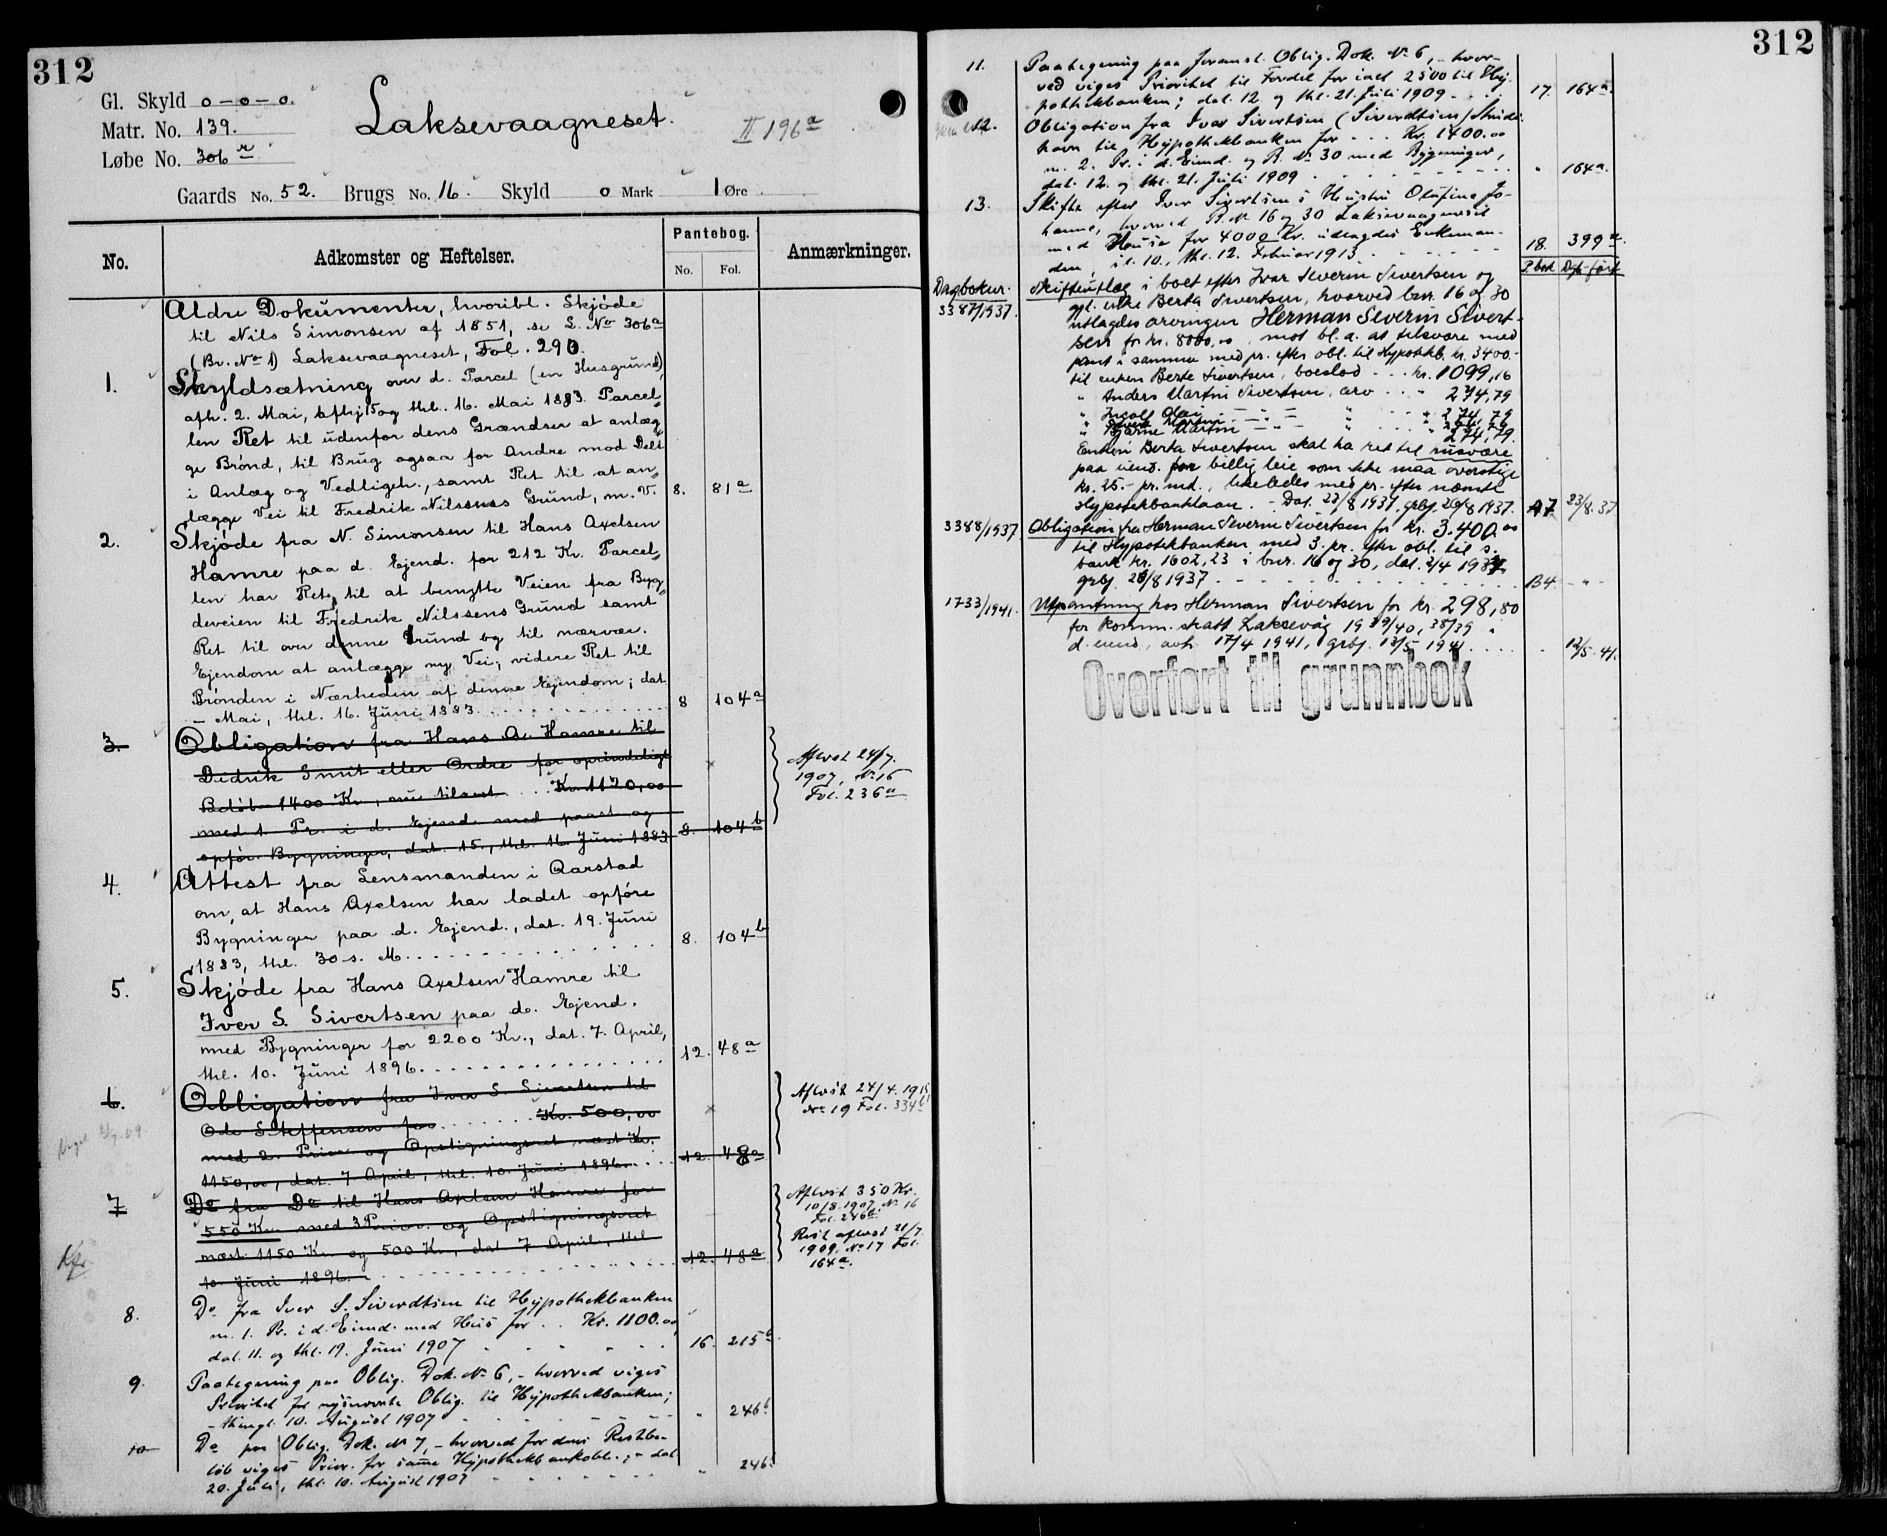 312
Gl. Skyld o-o-o.
Matr. No. 139.
Løbe No. 306 r
Laksevaagneset.
II 196a
Gaards No. 52. Brugs No. 16. Skyld o Mark 1 Øre
No.
Adkomster og Heftelser.
Pantebog.
No. Fol.
Anmærkninger.
Aldre Dokumenter, hvoribl. Skjøde
til Nils Simonsen af 1851, se L. No 306a
(Br. No 1) Laksevaagneset, Fol. 290.
1. Skyldsætning over d. Parcel (en Husgrund),
afh. 2. Mai, og thl. 16. Mai 1883. Parcel-
len Ret til udenfor dens Grændser at anlæg-
ge Brønd, til Brug ogsaa for Andre mod Delt
i Anlæg og Vedligeh., samt Ret til at an-
lægge Vei til Fredrik Nilssens Grund, m.V. 8. 81a
2. Skjøde fra N. Simonsen til Hans Axelsen
Hamre paa d. Ejend. for 212 Kr. Parcel-
len har Ret til at benytte Veien fra Byg-
deveien til Fredrik Nilssens Grund samt
Ret til over denne Grund og til nærvær.
Ejendom at anlægge ny Vei, videre Ret til
Brønden i Nærheden af denne Ejendom; dat.
- Mai, thl. 16. Juni 1883. 8 104a
3. Obligation fra Hans Ax. Hamre til
Didrik Smit eller Ordre for oprindeligt
Beløb 1400 Kr., nu tilrest Kr. 1120,00
med 1. Pr. i d. Ejend. med paast. og
opfør. Bygninger, dat. 15., thl. 16. Juni 1883 8. 104b
Aflvst 24/7.
1907, No 16
Fol. 236a
4. Attest fra Lensmanden i Aarstad
om, at Hans Axelsen har ladet opføre
Bygninger paa d. Ejend., dat. 19. Juni
1883, thl. 30 s. M. 8. 104b
5. Skjøde fra Hans Axelsen Hamre til
Iver S. Sivertsen paa do. Ejend.
med Bygninger for 2200 Kr., dat. 7. April,
thl. 10. Juni 1896. 12. 48a
6. Obligation fra Iver S. Sivertsen til
Ode Steffensen for Kr. 500,00
med 2. Prior. og Opstigningsret næst Kr.
1150,00, dat. 7 April, thl. 10. Juni 1896. 12. 48a
Aflvst 24/4. 1915
No 19 Fol. 334
7 Do fra Do til Hans Axelsen Hamre for
550 Kr. med 3 Prior. og Opstigningsret
næst 1150 Kr og 500 Kr., dat 7 April, thl
10. Juni 1896. 12. 48a
Aflvst 350 Kr.
10/8 1907, No 16
Fol. 246b
Rest aflvst 21/7
1909. No 17 Fol.
164a.
8. Do fra Iver S. Siverdtsen til Hypothekbanken
m. 1. Pr. i d. Eiend. med Hus for Kr. 1100.00,
dat. 11. og thl. 19. Juni 1907 16. 215
9. Paategning paa Oblig. Dok. No 6, - hvorved viges
Prioritet for nysnævnte Oblig. til Hypothekbanken;
- thingl. 10. August 1907 " 246b
10 Do paa Oblig. Dok. No 7, - hvorved for dens Restbe-
løb viges Prior. for samme Hypothekbankobl.; - dat.
20. Juli, thl. 10. August 1907 " 246
312
11. Paategning paa foranst. Oblig. Dok. No 6, - hvor-
ved viges Prioritet til Fordel for ialt 2500 til Hy-
pothekbanken; dat. 12. og thl. 21. Juli 1909 17. 164a.
12. Obligation fra Ivar Sivertsen (Siverdtsen)
til Hypothekbanken for Kr. 1400.00
m. 2. Pr. i d. Eiend. og B. No 30 med Bygninger,
dat. 12. og thl. 21. Juli 1909 " 164a.
13. Skifte efter Iver Sivertsens Hustru Olufine Jo-
hanne, hvorved B. No 16 og 30 Laksevaagneset
med Huse for 4000 Kr. udlagdes Enkeman-
den, d. 10., thl. 12. Februar 1913 18. 399a.
P. bok Dgb. ført
Dagboknr.
3387/1937. Skifteutlæg i boet efter Ivar Severin Sivertsen og
gjl. enke Berta Sivertsen, hvorved bnr. 16 og 30
utlagdes arvingen Herman Severin Sivert-
sen for kr. 8000,00, mot bl. a. at tilsvare med
pant i samme med pr. efter obl. til Hypotekb. kr. 3400.-
til enken Berte Sivertsen, boeslod kr. 1099,16
" Anders Martin Sivertsen, arv " 274,79
" Ingolf Olai " 274,79
" Bjarne Martin " 274,79.
Enken Berta Sivertsen skal ha ret til husvære
paa eiend. for billig leie som ikke maa overstige
kr. 25.- pr. md., likeledes med pr. efter nævnte
Hypotekbanklaan. - Dat. 23/8 1937, grbf. 26/8 1937. A7 23/8.37
3388/1937 Obligation fra Herman Severin Sivertsen for kr. 3.400.00
til Hypotekbanken med 3. pr. efter obl. til s.
bank kr. 1602,23 i bnr. 16 og 30, dat. 2/4 1937
grbf. 26/8 1937. B4. - " -
1733/1941. Utpantning hos Herman Sivertsen for kr. 298,80
for komm. skatt Laksevåg 1939/40, 38/39 i
d. eiend., avh. 17/4 1941, grbf. 13/5 1941. " 12/5.41.
Overført til grunnbok